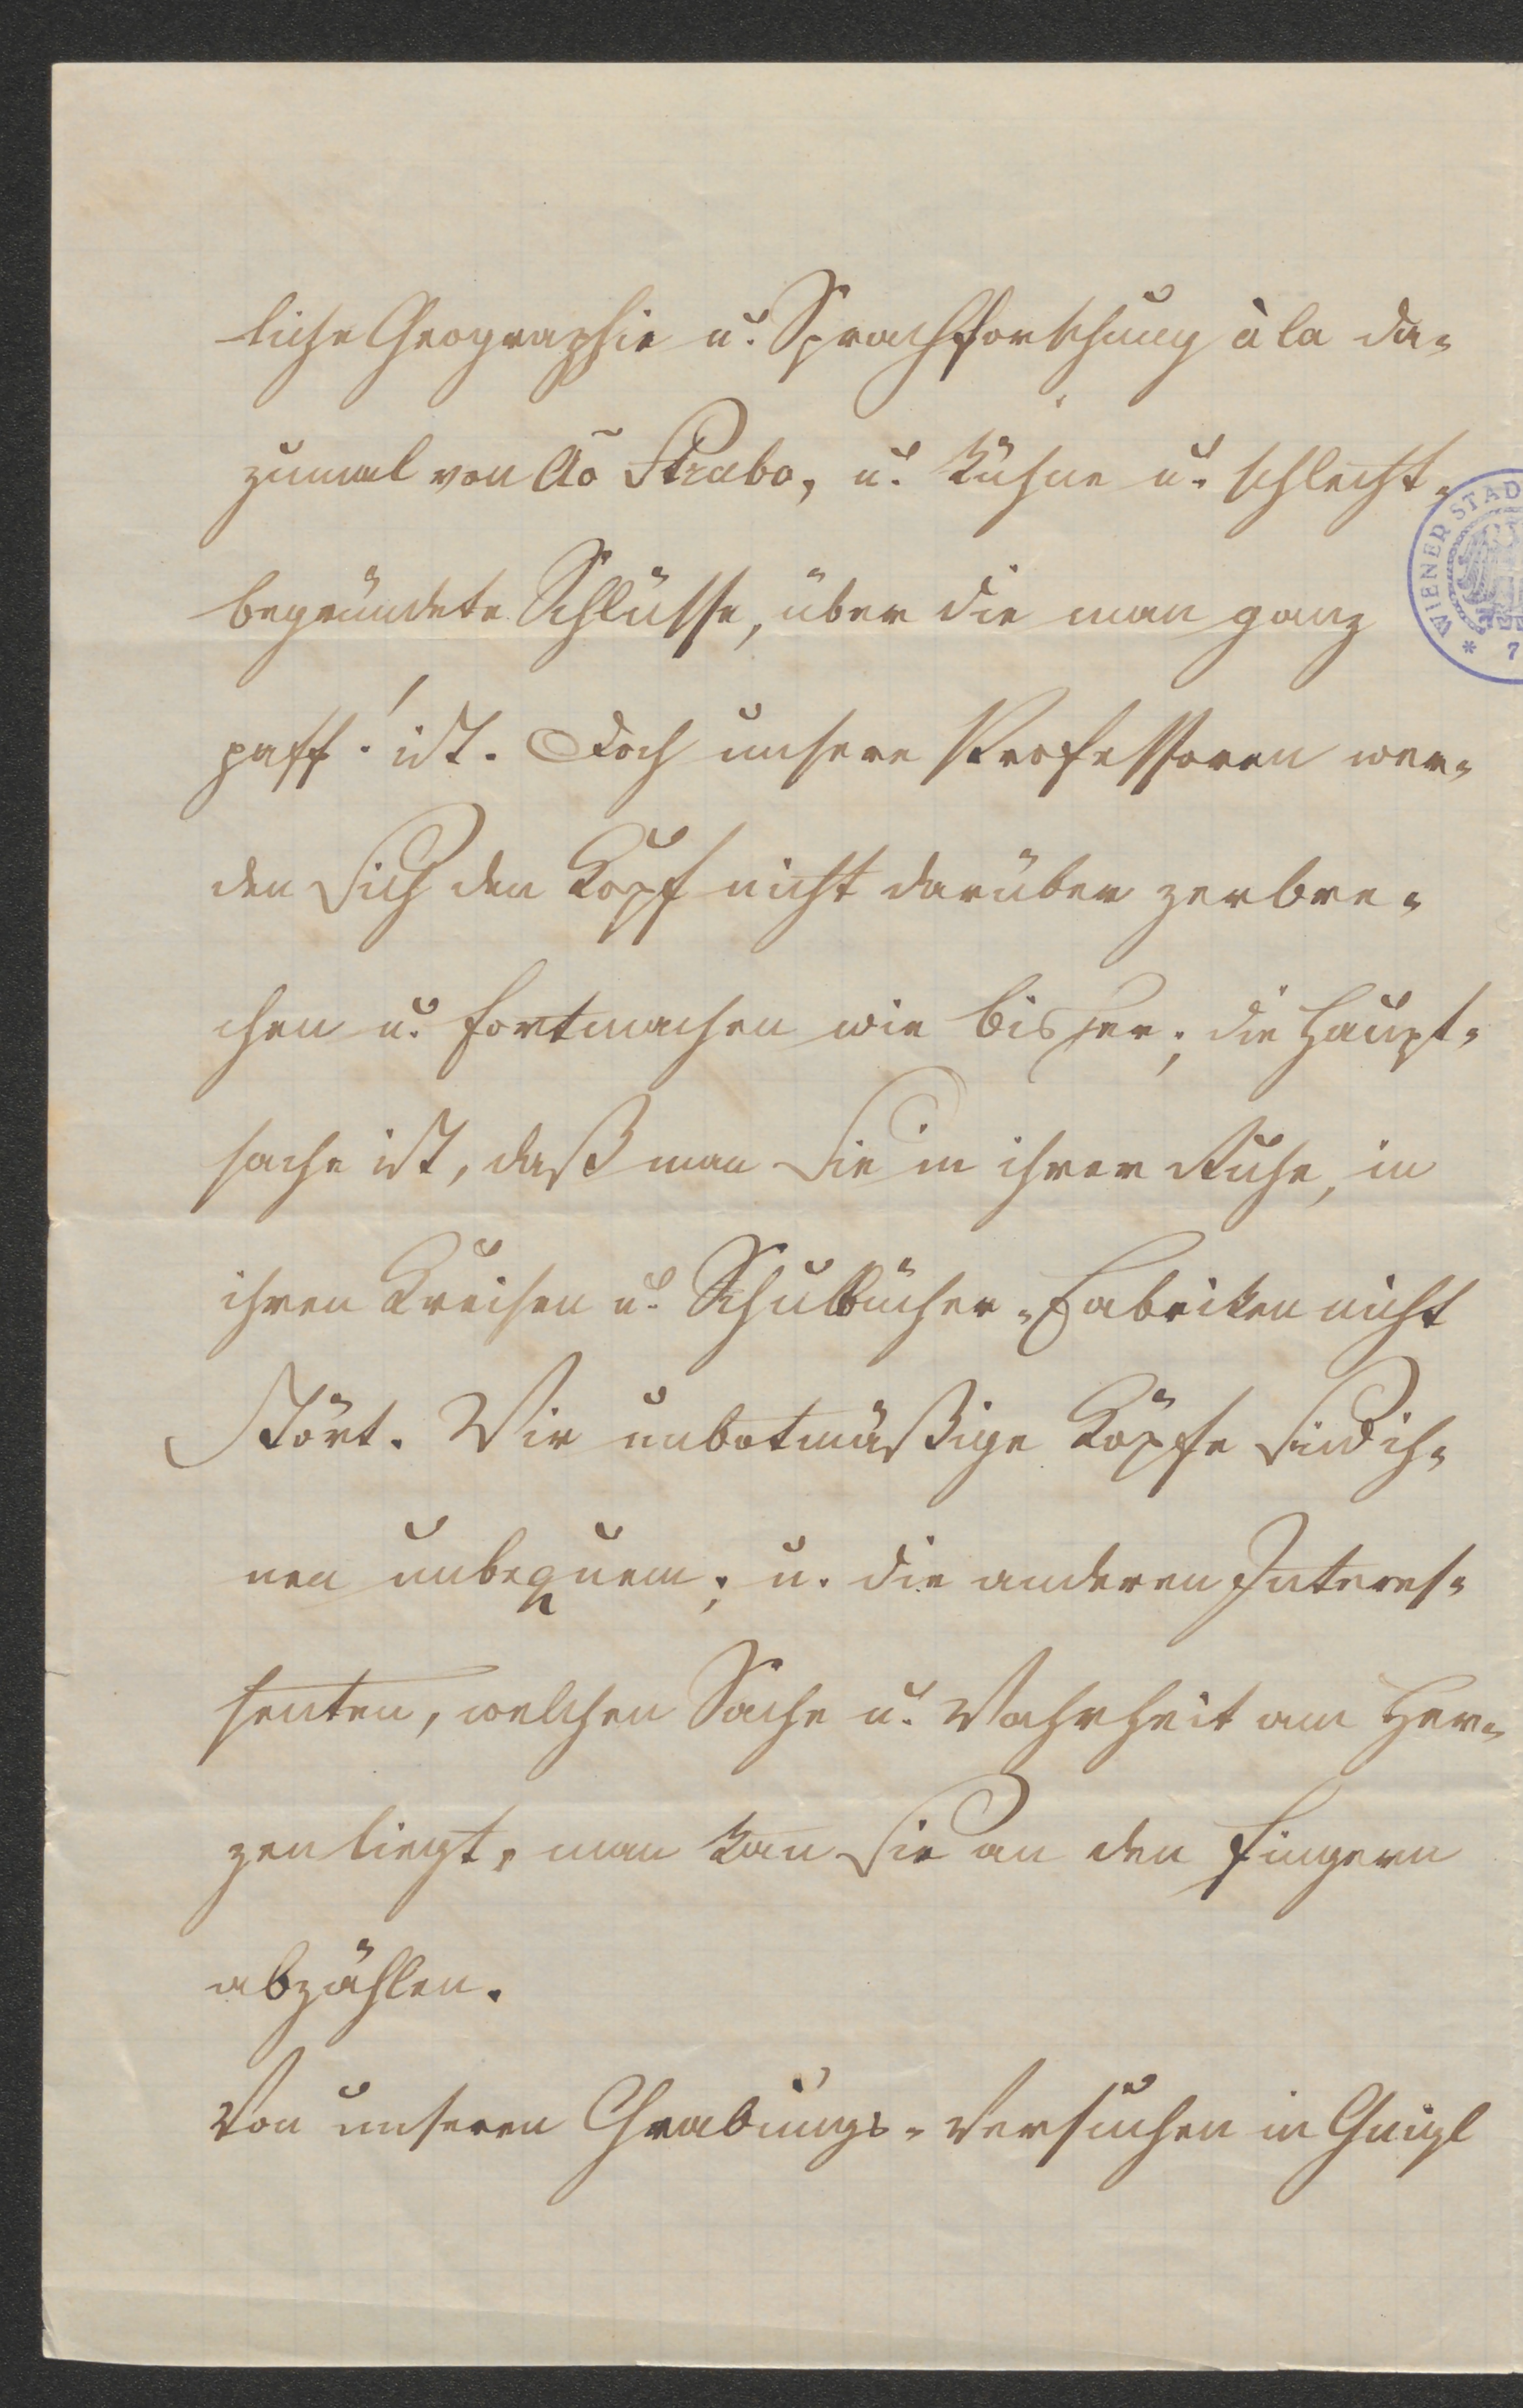 liche Geographie u. Sprachforschung à la da-
zumal von Ao Strabo, u. kühne u. schlecht-
begründete Schlüsse, über die man ganz
paff! ist. Doch unsere Professoren wer-
den sich den Kopf nicht darüber zerbre-
chen u. fortmachen wie bisher; die Haupt-
sache ist, daß man sie in ihrer Ruhe, in
ihren Kreisen u. Schulbücher-Fabriken nicht
stört. Wir unbotmäßige Köpfe sind ih-
nen unbequem; u. die anderen Interes-
senten, welchen Sache u. Wahrheit am Her-
zen liegt, man kan̄ sie an den Fingern
abzählen.
Von unseren Grabungs-Versuchen in Gnigl
WIENER STAD
* 7